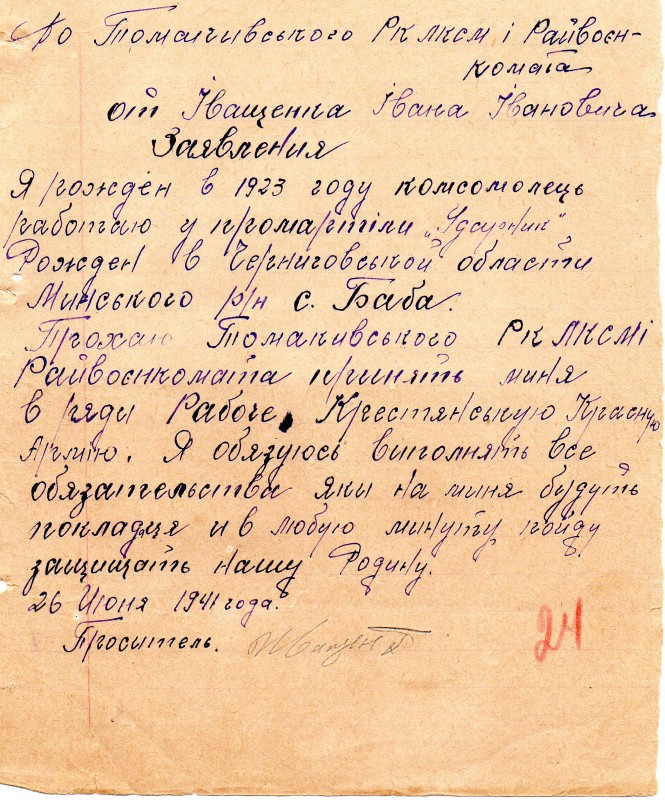 До Томаківського Рк ЛКСМ і Райвоєн-
комата
от Іващенка Івана Івановича
Заявления
Я рожден в 1923 году комсомолець
работаю у промартіли „Ударник“
Рожден в Черниговськой області
Минського р/н с. Баба.
Прохаю Томакивського Рк ЛКСМі
Райвоєнкомата принять миня
в ряди Рабоче Крестянськую Красную
Армію. Я обязуюсь виполнять все
обязательства яки на миня будуть
покладця и в любую минуту пойду
защищать нашу Родину.
26 Июня 1941 года.
Проситель.
24